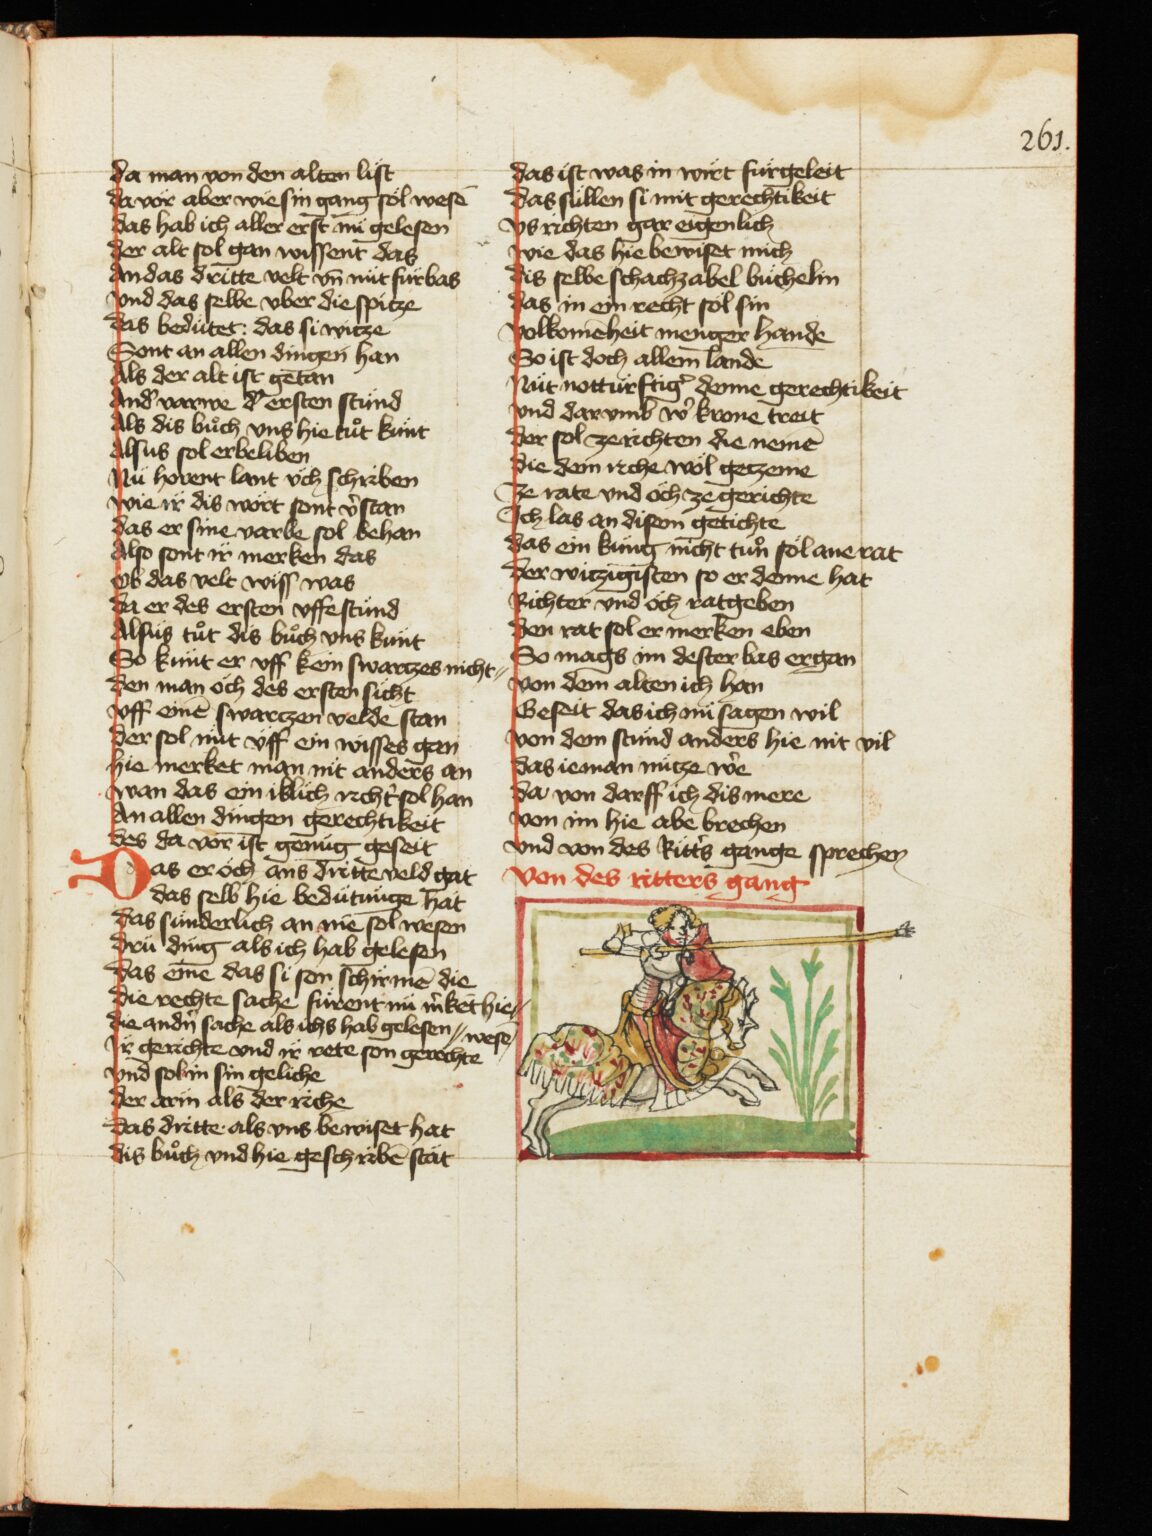 261.
da man von den alten list
da vor aber wie sin gang sol wesē
das hab ich aller erst nu gelesen
der alt sol gan wissent das
an das dritte velt vn̄ nut fúrbas
vnd das selbe vber die spitze
das bedútet: das si witze
Sont an allen dingen han
Als der alt ist getan
And' varwe d' ersten stund
Als dis bůch vns hie tůt kunt
Alsus sol er beliben
Nu horent lant vch schriben
wie ir dis wort sont v'stan
das er sine varbe sol behan
Also sont ir merken das
ob das velt wiss was
da er des ersten vffe stund
Alsus tůt dis bůch vns kunt
So kunt er vff kein swartzes nicht
den man och des ersten sicht
vff einē swartzen velde stan
der sol nut vff ein wisses gan
hie merket man nit anders an
wan das ein iklich richt' sol han
An allen dingen gerechtikeit
des da vor ist genug geseit
Das er och ans dritte veld gat
das selb hie bedutunge hat
das sunderlich an ime sol wesen
drú ding als ich hab gelesen
das eine das si son schirmē die
die rechte sache fúrent nu m'ket hie
die and'n sache als ichs hab gelesen
ir gerichte vnd ir rete son gerechte wesē
vnd sol in sin geliche
der arm als der riche
das dritte als vns bewiset hat
dis bůch vnd hie geschribē stat
das ist was in wirt fúrgeleit
das sullen si mit gerechtikeit
vs richten gar eigenlich
wie das hie bewiset mich
dis selbe schachzabel buchelin
das in ein recht sol sin
volkomēheit menger hande
So ist doch allem lande
Nút notturftig' denne gerechtikeit
vnd darvmb w' krone treit
der sol ze richten die nemē
die dem riche wol gezeme
Ze rate vnd och ze gerichte
Ich las an disem getichte
das ein kung nicht tůn sol ane rat
der witzigisten so er denne hat
Richter vnd och ratgeben
den rat sol er merken eben
So mags im dester bas ergan
von dem alten ich han
Geseit das ich nu sagen wil
von dem stund anders hie nit vil
das ieman nutze w'e
da von darff ich dis mere
von im hie abe brechen
vnd von des Ritt's gange sprechen
von des ritters gang